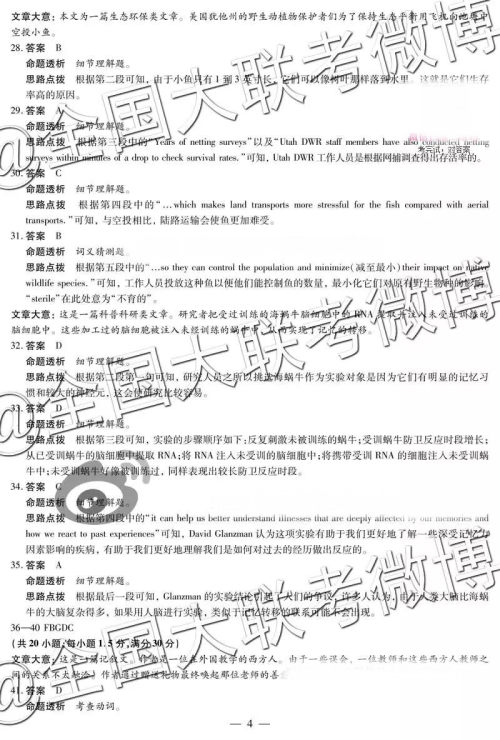 文章大意：本文为一篇生态环保类文章。美国犹他州的野生动植物保护者们为了保持生态平衡用飞机向地面中
空投小鱼。
28. 答案　B
命题透析　细节理解题。
思路点拨　根据第二段可知，由于小鱼只有 1 到 3 英寸长，它们可以像树叶那样落到水里。这就是它们生存
率高的原因。
29. 答案　A
命题透析　细节理解题。
思路点拨　根据第三段中的“Years of netting surveys”以及“Utah DWR staff members have also conducted netting
surveys within minutes of a drop to check survival rates.”可知，Utah DWR 工作人员是根据网捕调查得出存活率的。
30. 答案　C
命题透析　细节理解题。
思路点拨　根据第四段中的“…which makes land transports more stressful for the fish compared with aerial
transports.”可知，与空投相比，陆路运输会使鱼更加难受。
31. 答案　B
命题透析　词义猜测题。
思路点拨　根据第五段中的“…so they can control the population and minimize(减至最小) their impact on native
wildlife species.”可知，工作人员投放这种鱼以便他们能控制鱼的数量，最小化它们对原有野生物种的影响，
“sterile”在此处意为“不育的”。
文章大意：这是一篇科普科研类文章。研究者把受过训练的海蜗牛脑细胞中的 RNA 提取并注入未受过训练的
脑细胞中。这些加工过的脑细胞被注入未经训练的蜗牛中，从而实现了记忆的转移。
32. 答案　D
命题透析　细节理解题。
思路点拨　根据第二段第一句可知，研究人员之所以挑选海蜗牛作为实验对象是因为它们有明显的记忆习
惯和较大的神经元，这会使研究比较容易。
33. 答案　D
命题透析　细节理解题。
思路点拨　根据第三段可知，实验的步骤顺序如下：反复刺激未被训练的蜗牛；受训蜗牛防卫反应时段增长；
从已受训蜗牛的脑细胞中提取 RNA；将 RNA 注入未受训的脑细胞中；将携带受训 RNA 的细胞注入未受训蜗
牛中；未受训蜗牛好像被训练过，同样表现出较长防卫反应时段。
34. 答案　C
命题透析　细节理解题。
思路点拨　根据第四段中的“it can help us better understand illnesses that are deeply affected by our memories and
how we react to past experiences”可知，David Glanzman 认为这项实验有助于我们更好地了解一些深受记忆
因素影响的疾病，有助于我们更好地理解我们是如何对过去的经历做出反应的。
35. 答案　A
命题透析　细节理解题。
思路点拨　根据最后一段可知，Glanzman 的实验结论引起了人们的争议，许多人认为，由于人类大脑比海蜗
牛的大脑复杂得多，如果用人脑进行实验，类似于记忆转移的联系可能不会出现。
36—40 FBGDC
（共 20 小题；每小题 1. 5 分，满分 30 分）
文章大意：这是一篇记叙文。作者是一位在外国教学的西方人。由于一些误会，一位教师和这些西方人教师之
间的关系不太融洽，作者通过赠送礼物最终唤起那位老师的善
41. 答案　D
命题透析　考查动词。
— 4 —
@全国大联考微博
@全国大联考微博
@全国大联考微博